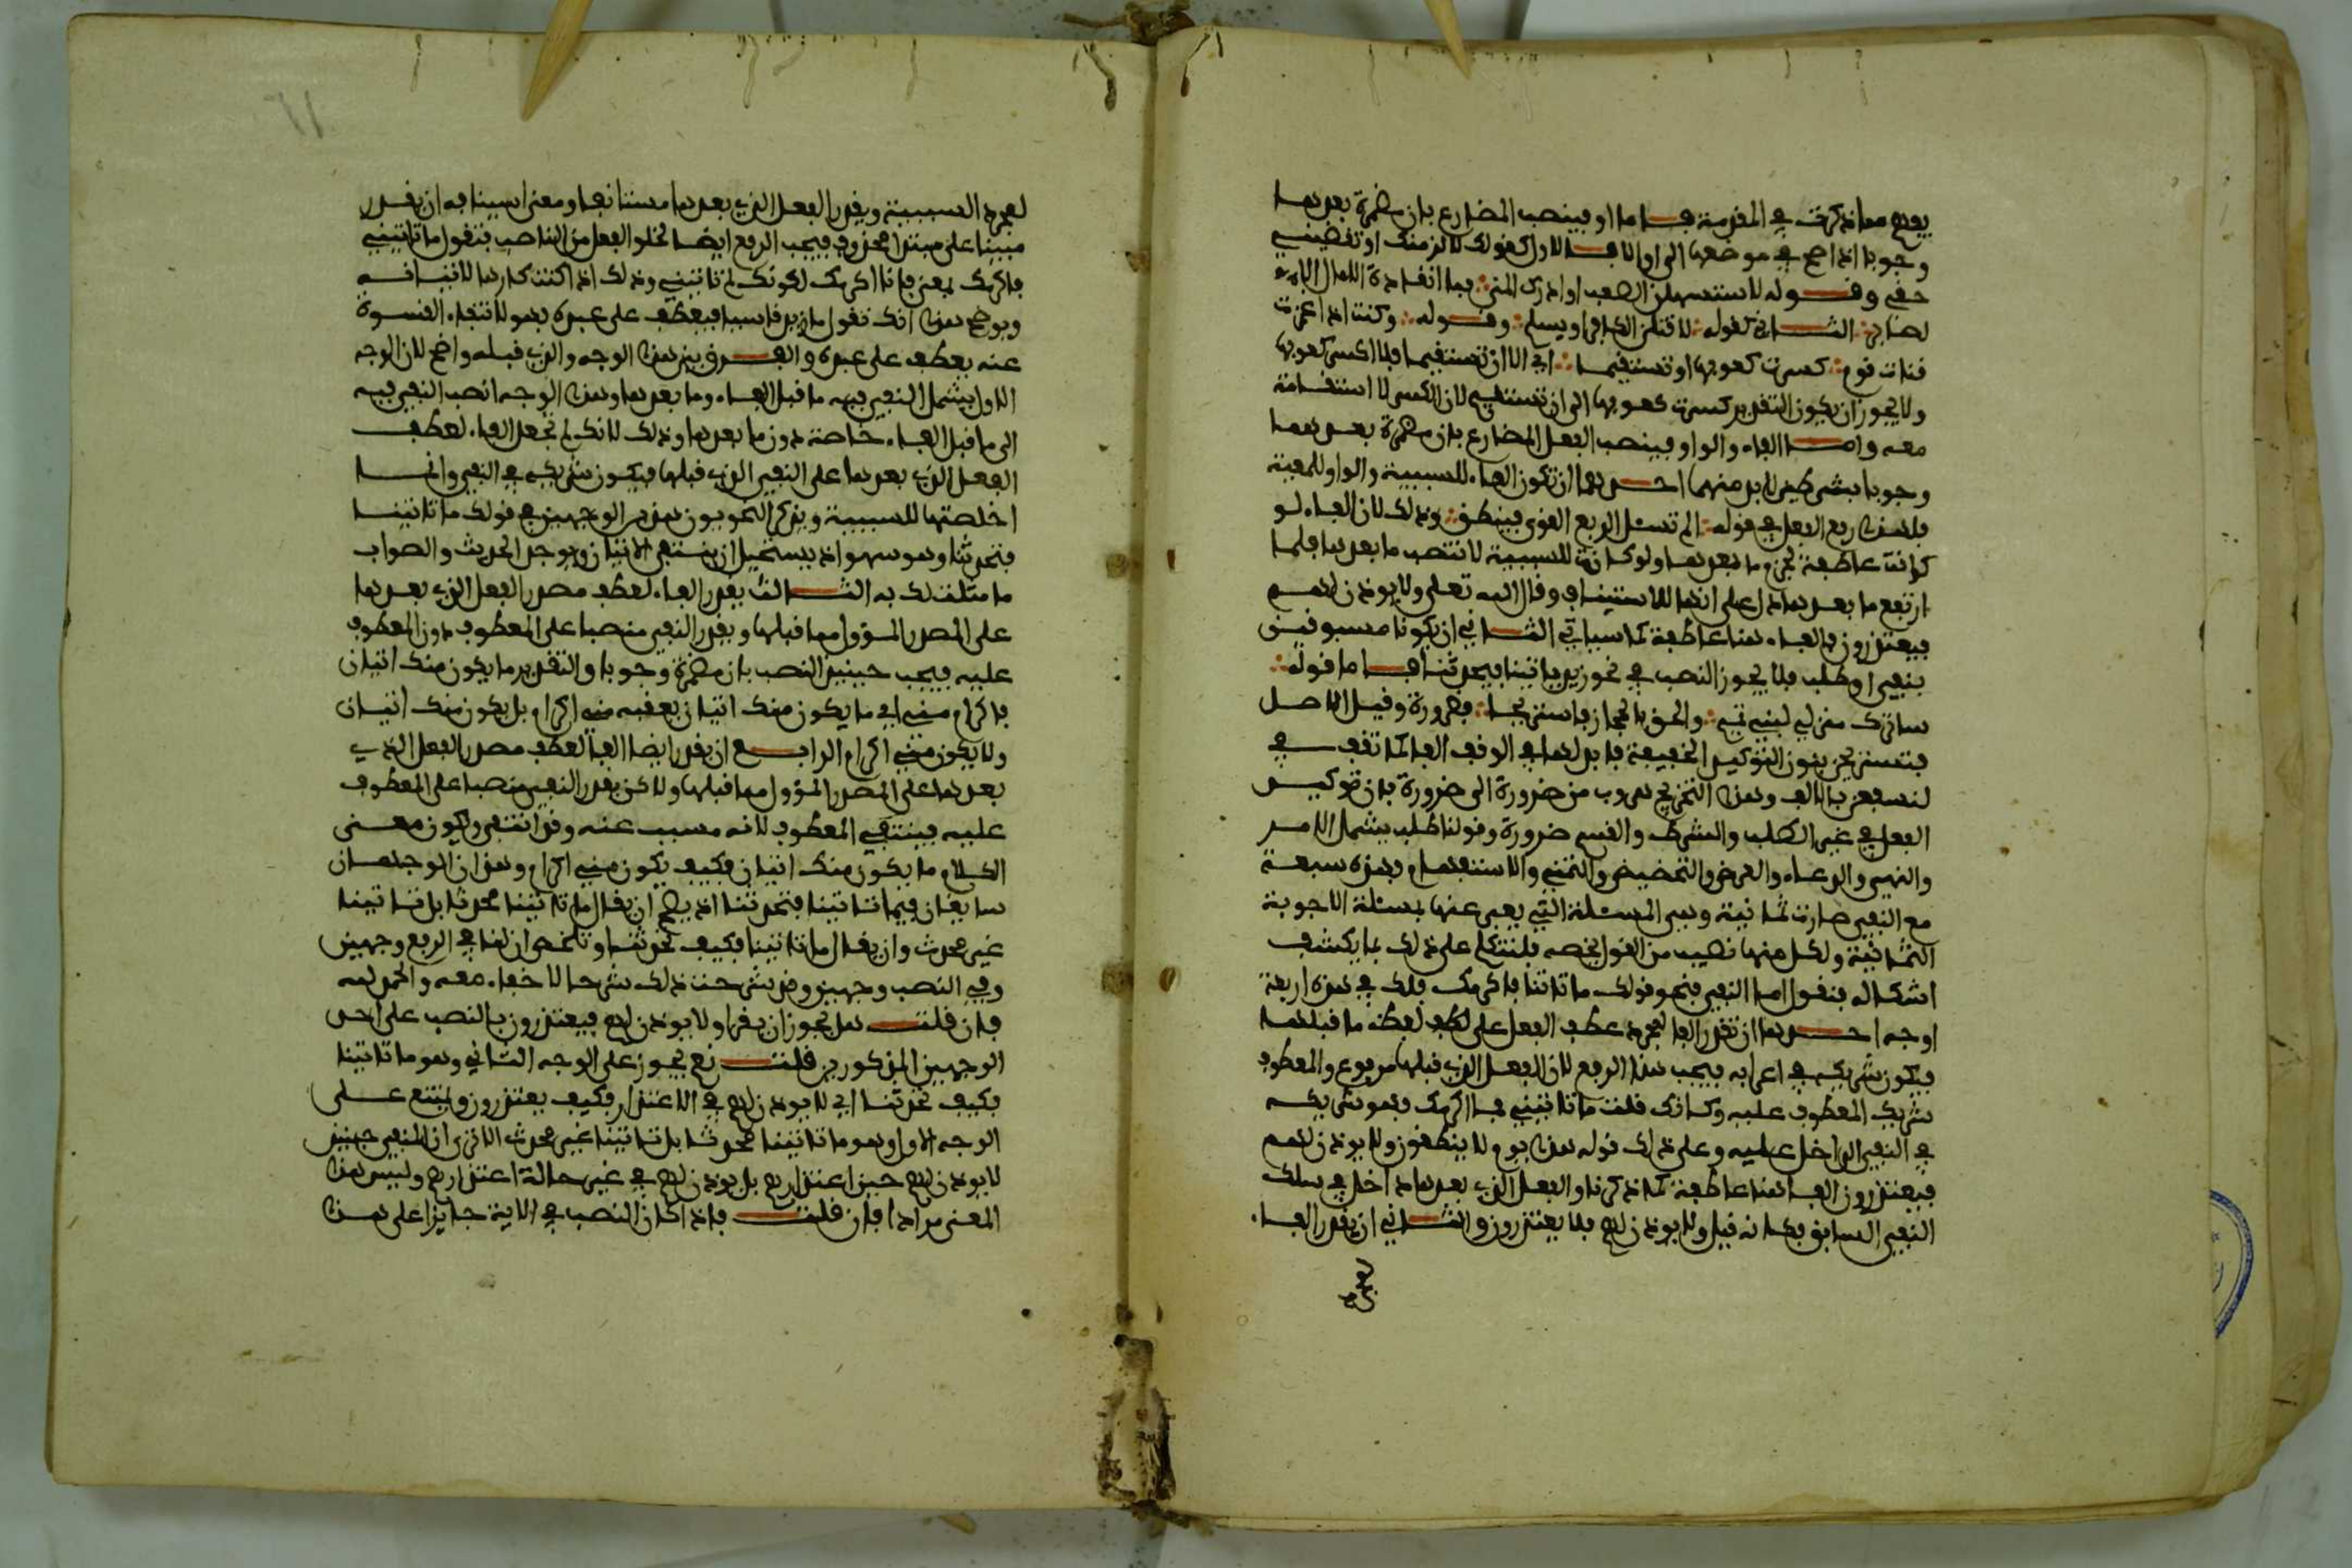 يفدح معا ذكرت في المقدمة فاما او فينصب المضارع بان مضمرة بعدها
وجوبا اذا صح في موضعها الى او الا فالاول كقولك لالزمنك او تقضيني
حقي وقوله لاستسهلن الصعب او ادرك المنى فما انقادت الامال الا
لصابر الثاني كقوله لاقتلن الكافر او يسلم وقوله وكنت اذا غمزت
قناة قوم كسرت كعوبها او تستقيما اي الا ان تستقيم فلا اكسر كعوبها
ولا يجوز ان يكون التقدير كسرت كعوبها الى ان تستقيم لان الكسر لا استقامة
معه واما الفاء والواو فينصب الفعل المضارع بان مضمرة بعدهما
وجوبا بشرطين لابد منهما احدهما ان تكون الفاء للسببية والواو للمعية
فلهذا رفع الفعل في قوله الم تسئل الربع القوى فينطق وذلك لان الفاء لو
كانت عاطفة لجزم ما بعدها ولو كانت للسببية لانتصب ما بعدها فلما
ارتفع ما بعدها دل على انها للاستيناف وقال الله تعلى ولا يوذن لهم
فيعتذرون فالفاء هنا عاطفة كما سياتي الثاني ان يكونا مسبوقين
بنفي او طلب فلا يجوز النصب في نحو زيد ياتينا فيحدثنا فاما قوله
ساترك منزلي لبني تميم والحق بالحجاز فاستريحا فضرورة وقيل الاصل
فتستريحن بنون التوكيد الخفيفة فابدلها في الوقف الفا كما تقف في
لنسفعن بالالف وهذا التخريج هروب من ضرورة الى ضرورة فان توكيد
الفعل في غير الطلب والشرط والقسم ضرورة وقولنا طلب يشمل الامر
والنهي والدعاء والعرض والتحضيض والتمني والاستفهام فهذه سبعة
مع النفي صارت ثمانية وهي المسئلة التي يعبر عنها بمسئلة الاجوبة
الثمانية ولكل منها نصيب من القول يخصه فلنتكلم على ذلك بما يكشف
اشكاله فنقول اما النفي فنحو قولك ما تاتنا فاكرمك فلك في هذه اربعة
اوجه احدها ان تقدر الفا لمجرد عطف الفعل على لفظ ما قبلها
فيكون شريكه في اعرابه فيجب هنا الرفع لان الفعل الذي قبلها مرفوع والمعطوف
شريك المعطوف عليه وكانك قلت ما تاتيني فما اكرمك فهو شريكه
في النفي الداخل عليه وعلى ذلك قوله هذا يوم لا ينطقون ولا يوذن لهم
فيعتذرون الفا هنا عاطفة كما ذكرنا والفعل الذي بعدها داخل في سلك
النفي السابق فكانه قيل ولا يوذن لهم فلا يعتذرون والثاني ان يقدر الفاء
لمجرد السببية ويقدر الفعل الذي بعدها مستانفا ومعنى استينافه ان يقدر
مبنيا على مبتدا محذوف فيجب الرفع ايضا لخلو الفعل من الناصب فتقول ما تاتيني
فاكرمك بمعنى فانا اكرمك لكونك لم تاتيني وذلك اذا كنت كارها لاتيانه
ويوضح هذا انك تقول ما زيد قاسيا فيعطف على عبده فهو لانتفاء القسوة
عنه يعطف على عبده والفرق بين هذا الوجه والذي قبله واضح لان الوجه
الاول يشمل النفي فيه ما قبل الفاء وما بعدها وهذا الوجه انصب النفي فيه
الى ما قبل الفاء خاصة دون ما بعدها وذلك لانك لم تجعل الفاء لعطف
الفعل الذي بعدها على النفي الذي قبلها فيكون شريكه في النفي وانما
اخلصتها للسببية ويذكر النحويون هذين الوجهين في قولك ما تاتينا
فتحدثنا وهو سهو اذ يستحيل ان ينتفي الاتيان ويوجد الحديث والصواب
ما مثلت لك به الثالث يقدر الفاء لعطف مصدر الفعل الذي بعدها
على المصدر المؤول مما قبلها ويقدر النفي منصبا على المعطوف دون المعطوف
عليه فيجب حينئذ النصب بان مضمرة وجوبا والتقدير ما يكون منك اتيان
فاكرام مني اي ما يكون منك اتيان يعقبه مني اكرام بل يكون منك اتيان
ولا يكون مني اكرام الرابع ان يقدر ايضا الفا لعطف مصدر الفعل الذي
بعدها على المصدر المؤول مما قبلها ولاكن يقدر النفي منصبا على المعطوف
عليه فينتفي المعطوف لانه مسبب عنه وقد انتفى ويكون معنى
الكلام ما يكون منك اتيان فكيف يكون مني اكرام وهذان الوجهان
سايغان فيما تاتينا فتحدثنا اذ يصح ان يقال ما تاتينا محدثا بل تاتينا
غير محدث وان يقال ما تاتينا فكيف تحدثنا وتلخص ان لنا في الرفع وجهين
وفي النصب وجهين وقد شرحت ذلك شرحا لا خفاء معه والحمد لله
فان قلت هل يجوز ان يقرا ولا يوذن لهم فيعتذرون بالنصب على احد
الوجهين المذكورين قلت نعم يجوز على الوجه الثاني وهو ما تاتينا
فكيف تحدثنا اي لا يوذن لهم في الاعتذار فكيف يعتذرون ويمتنع على
الوجه الاول وهو ما تاتينا محدثا بل تاتينا غير محدث الا ترى ان المعنى حينئذ
لا يوذن لهم حين اعتذارهم بل يوذن لهم في غير حالة اعتذارهم وليس هذا
المعنى مرادا فان قلت فاذا كان النصب في الاية جايزا على هذا